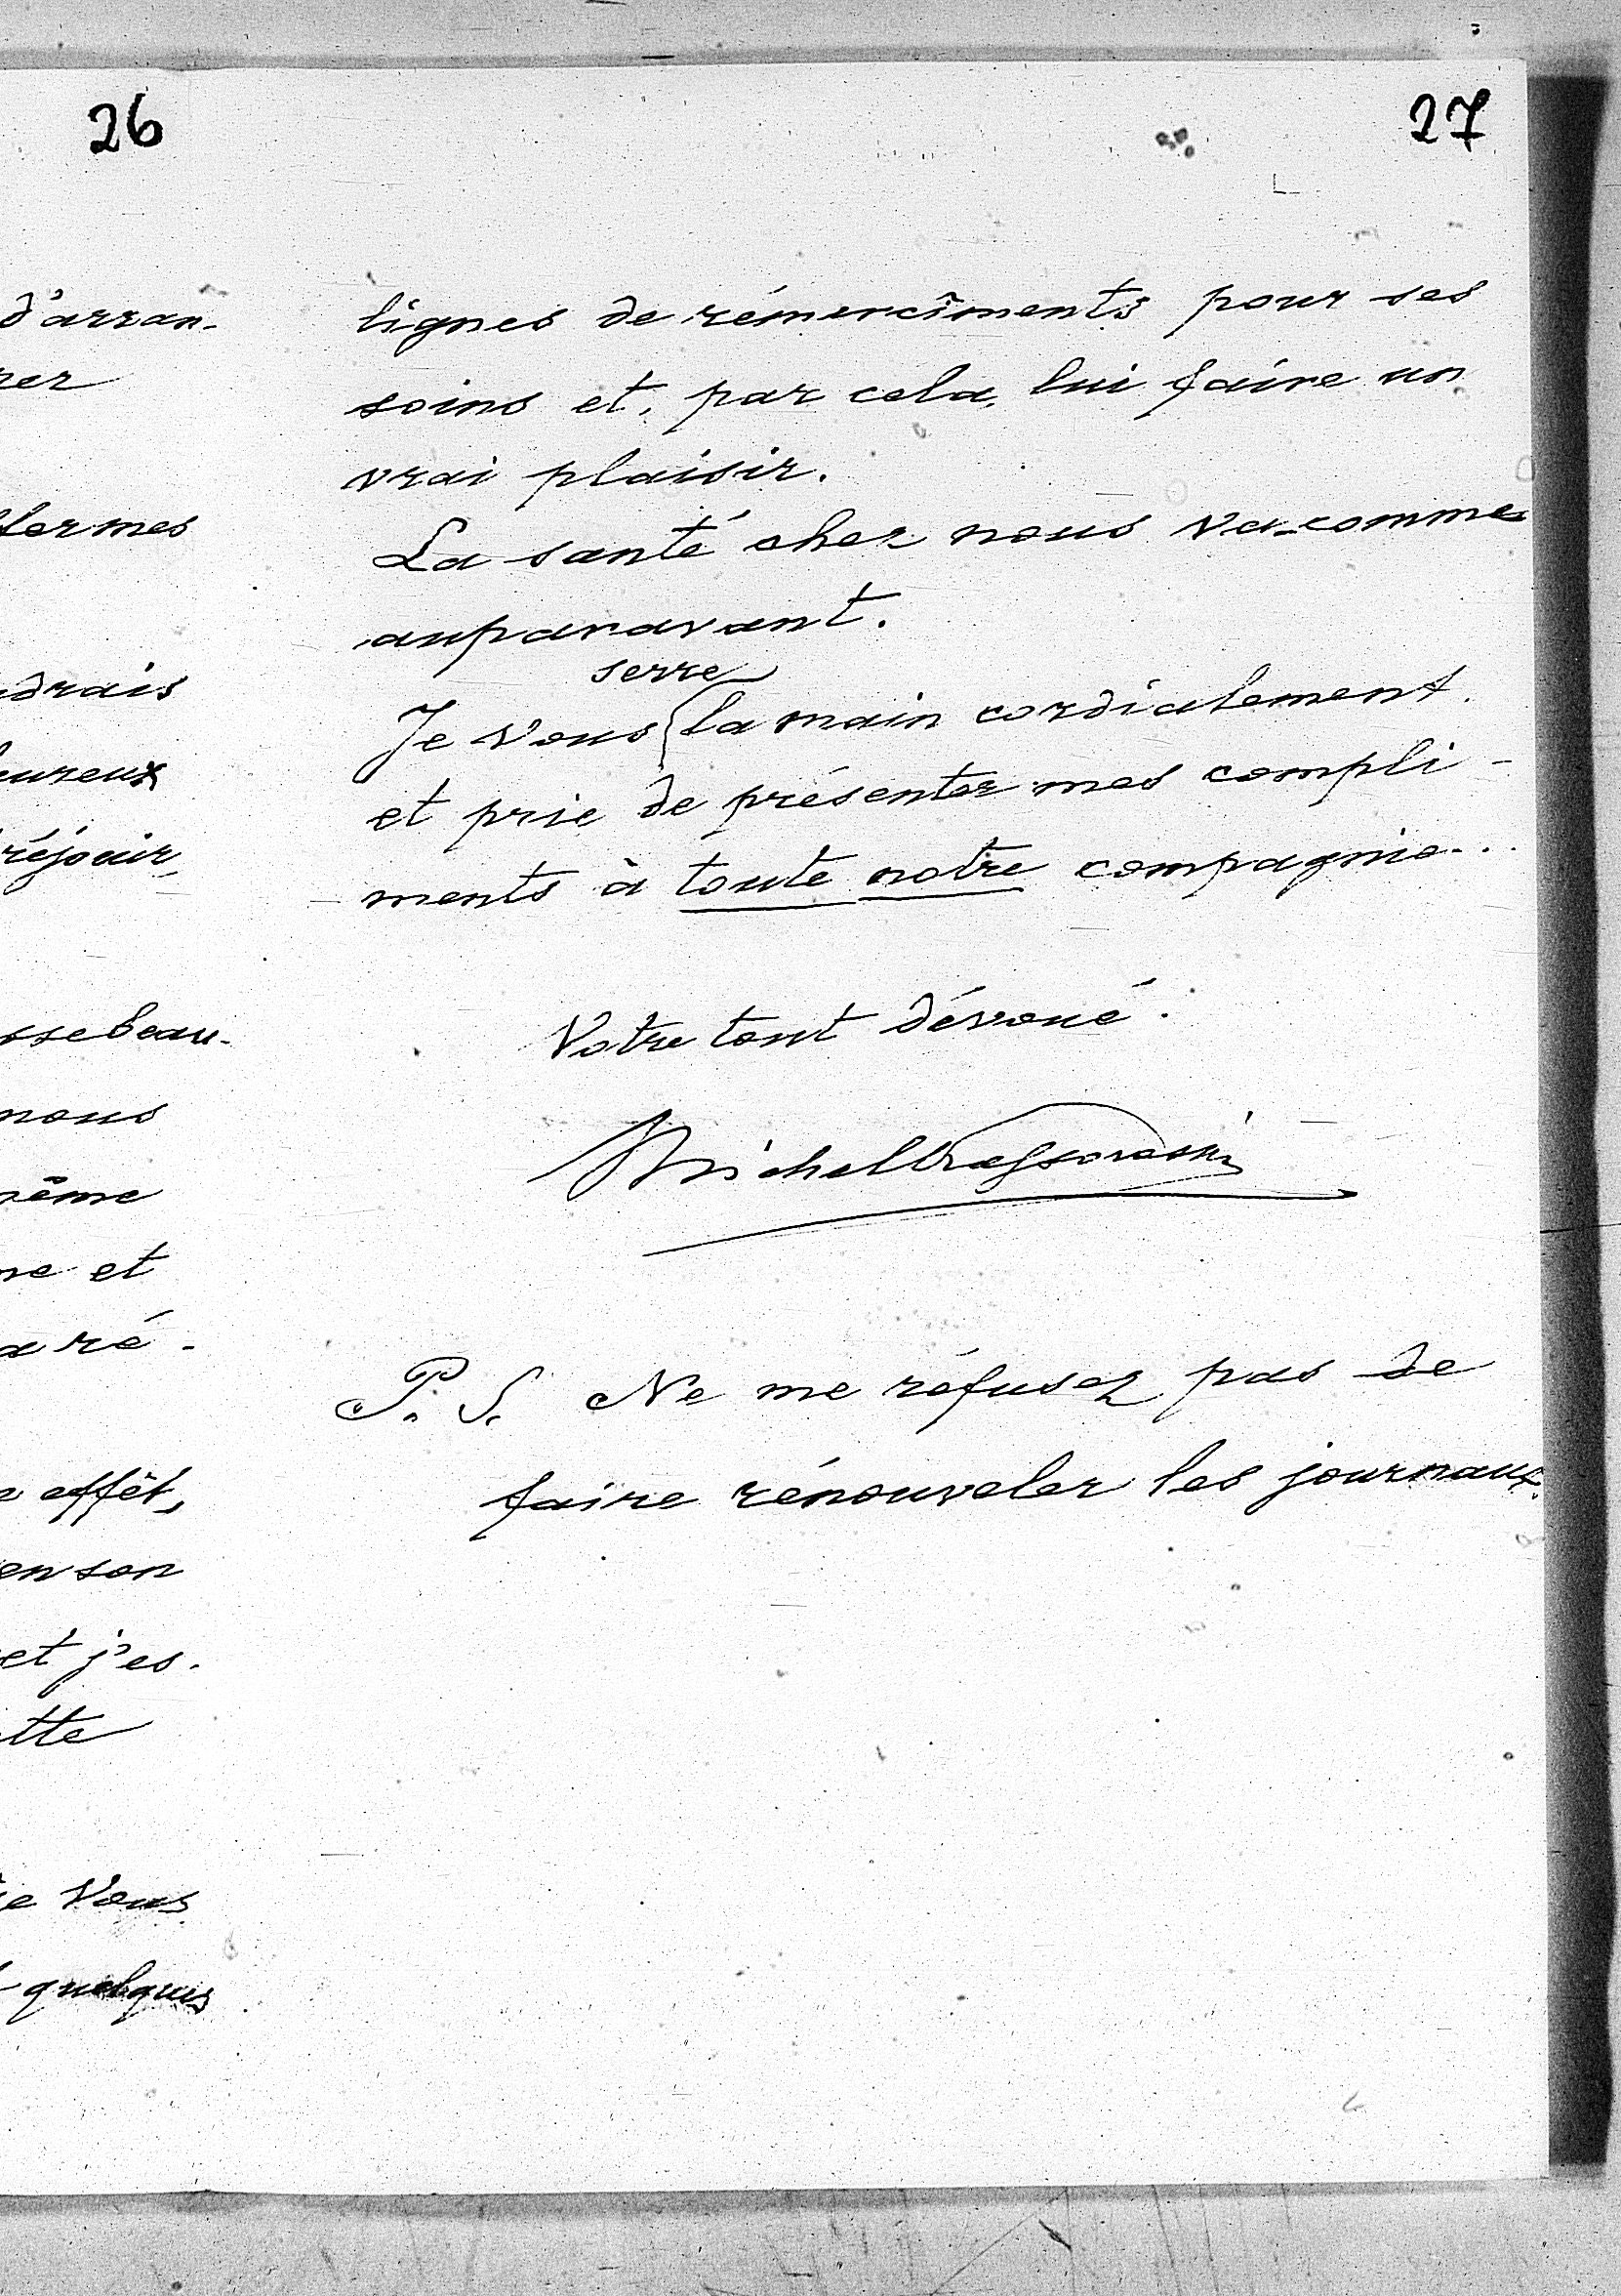 26
d'arran-
rer
fermes
drais
eureux
réjouir,
sse beau-
nous
même
ne et
a ré-
effêt,
en son
et j'es-
tte
je Vous
quelques
27
lignes de rémercîments pour ses
soins et, par cela, lui faire un
vrai plaisir.
La santé chez nous va comme
auparavant.
serre
Je Vous la main cordialement
et prie de présenter mes compli-
ments à toute notre compagnie...
Votre tout dévoué.
Michel
P. S. Ne me réfusez pas de
faire rénouveler les journaux.